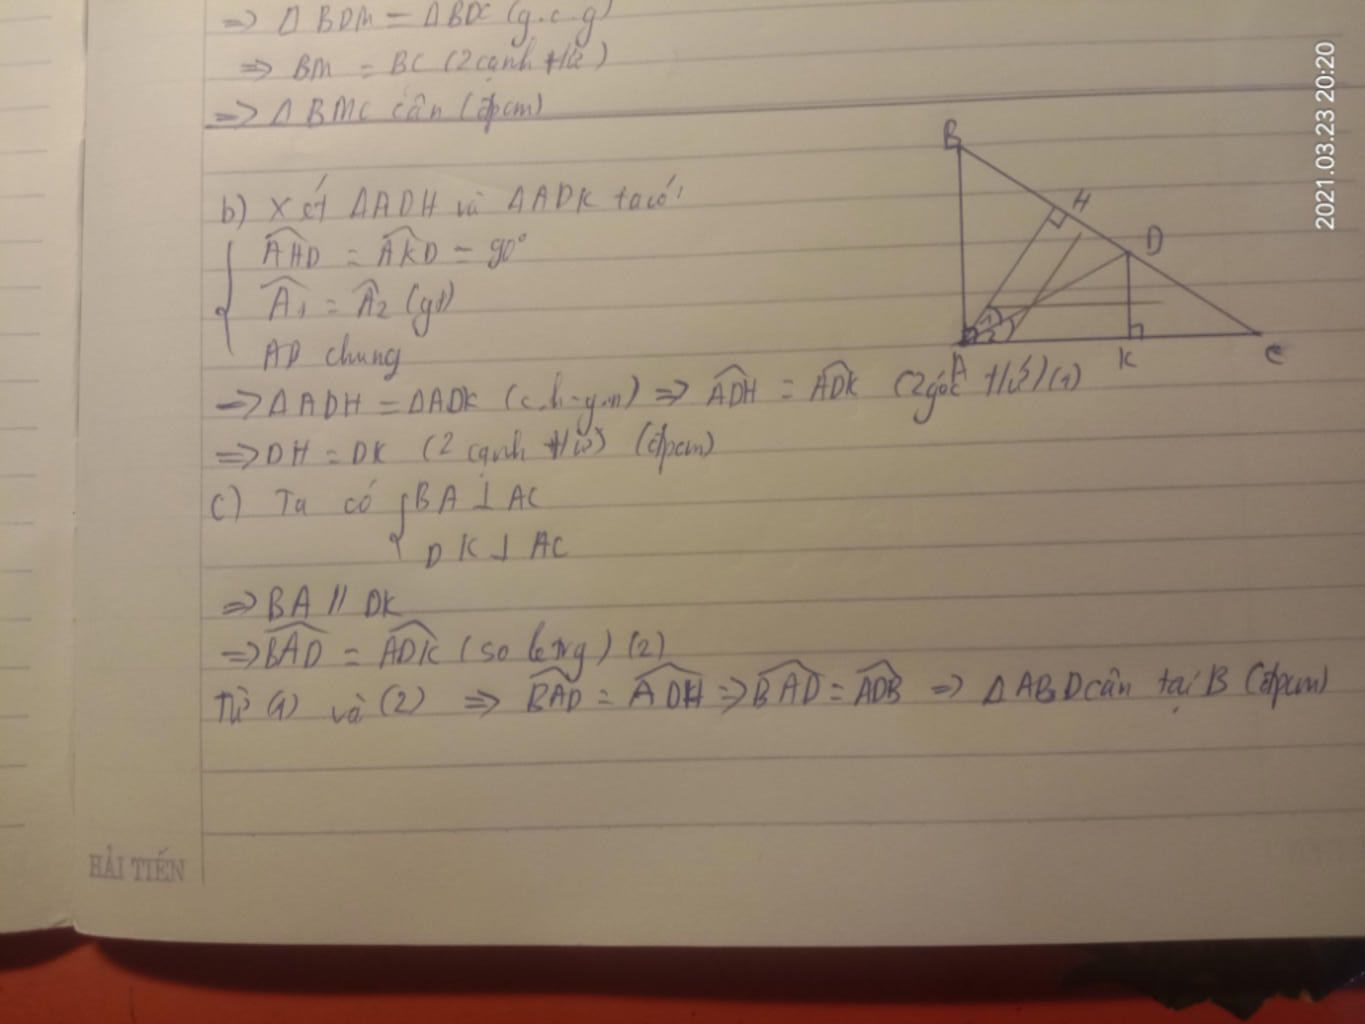 ⇒ Δ BDM = ΔBDC (g.c.g)
⇒ BM = BC (2 cạnh t/ứ)
⇒ Δ BMC cân (đpcm)
b) Xét ΔADH và ΔADK ta có:
AHD = AKD = 90°
A1 = A2 (gt)
AD chung
⇒ Δ ADH = ΔADK (c.h-g.n) ⇒ ADH = ADK (2 góc t/ứ) (1)
⇒ DH = DK (2 cạnh t/ứ) (đpcm)
c) Ta có BA ⊥ AC
DK ⊥ AC
⇒ BA // DK
⇒ BAD = ADK (so le trg) (2)
Từ (1) và (2) ⇒ BAD = ADH ⇒ BAD = ADB ⇒ Δ ABD cân tại B (đpcm)
B
H
D
1
2
A
K
C
2021.03.23 20:20
HẢI TIẾN